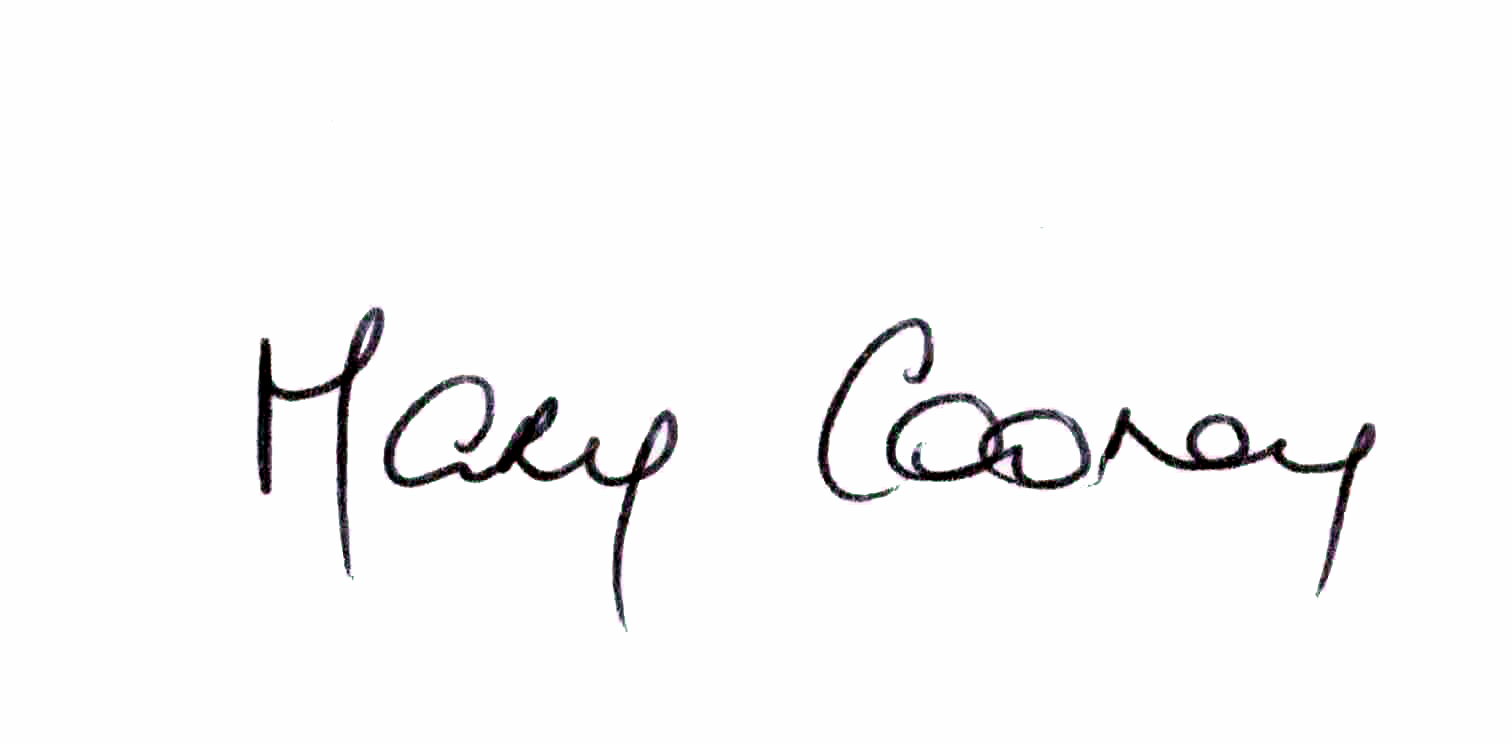 Mary Cooney